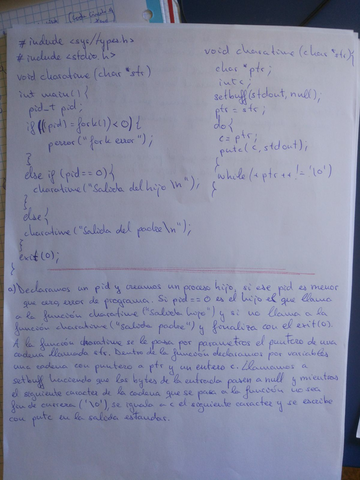 # include <sys/types.h>
# include <stdio.h>
void charatime (char *str)
int main() {
pid_t pid;
if ((pid) = fork() < 0) {
perror ("fork error");
}
else if (pid == 0) {
charatime ("Salida del hijo \n");
}
else {
charatime ("Salida del padre \n");
}
exit(0);
}
void charatime (char *str) {
char * ptr;
int c;
setbuff (stdout, null);
ptr = str;
do {
c = ptr;
putc (c, stdout);
} while (* ptr ++ != '\0')
}
a) Declaramos un pid y creamos un proceso hijo, si ese pid es menor
que cero, error de programa. Si pid == 0 es el hijo el que llama
a la función charatime ("Salida hijo") y si no llama a la
función charatime ("Salida padre") y finaliza con el exit(0).
A la función charatime se le pasa por parametros el puntero de una
cadena llamada str. Dentro de la función declaramos por variables
una cadena con puntero a ptr y un entero c. Llamamos a
setbuff haciendo que los bytes de la entrada pasen a null y mientras
el siguiente caracter de la cadena que se pasa a la función no sea
fin de carrera ('\0') se iguala a c el siguiente caracter y se escribe
con putc en la salida estandar.